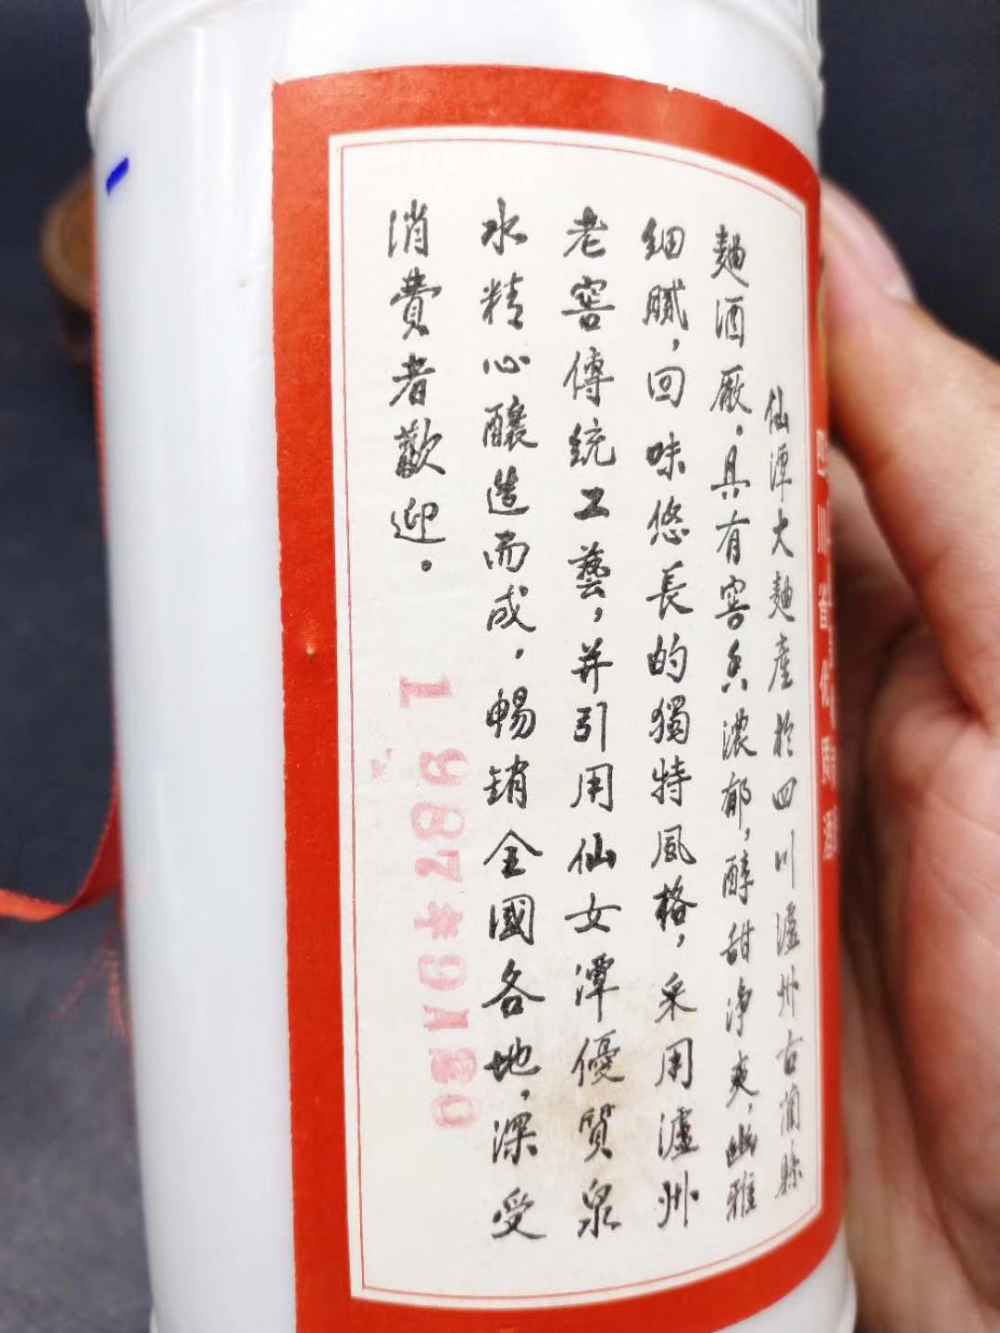 仙潭大麯產於四川瀘州古藺縣
麯酒厰。具有窖香濃郁，醇甜净爽，幽雅
細膩，回味悠長的獨特風格，采用瀘州
老窖傳統工藝，并引用仙女潭優質泉
水精心釀造而成，暢銷全國各地，深受
消費者歡迎。